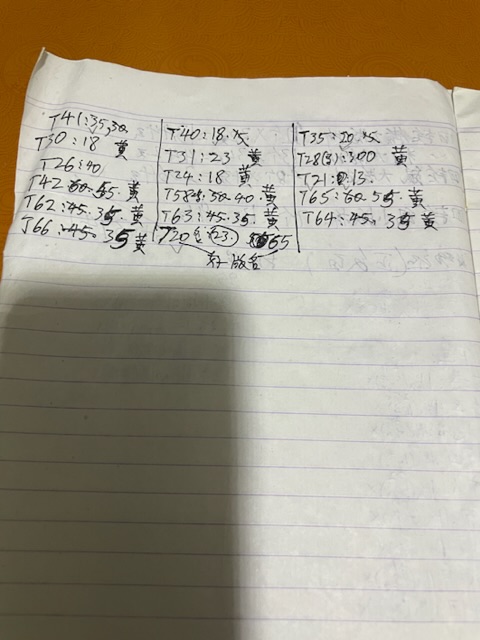 T41:35,30
T30:18 黄
T26:40
T42 60.55 黄
T62:45.35 黄
T66:45. 35 黄
T40:18.15
T31:23 黄
T24:18 黄
T58 50.40 黄
T63:45.35 黄
T20 (23) 65
T35:20.15
T28(3):300 黄
T21:13
T65:60.55 黄
T64:45. 35 黄